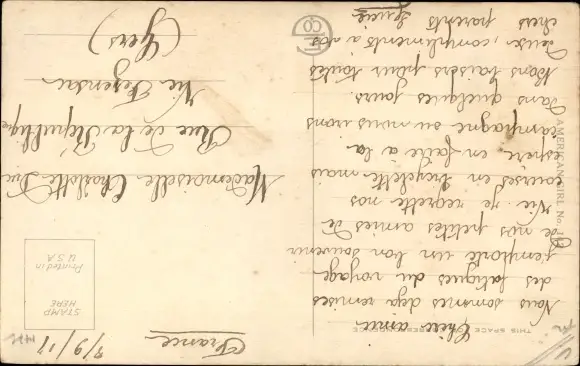 Chère amie
Nous sommes déjà remises
des fatigues du voyage
j'emporte un bon souvenir
de nos petites amies de
Vic. Je regrette nos
courses en bicyclette mais
espère en faire à la
campagne où nous irons
dans quelques jours.
Bons baisers pour toutes
deux, compliments à vos
chers parents
Lucie
France
Mademoiselle Charlotte
Rue de la République
Vic Fezensac
(Gers)
THIS SPACE
AMERICAN GIRL No.
STAMP
HERE
Printed in
U.S.A